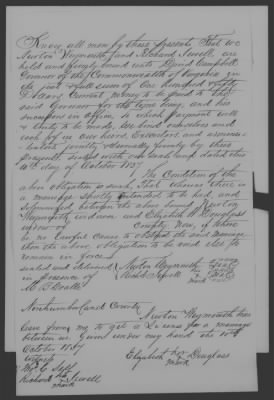 Know all men by these presents, That we
Newton Weymouth and Richard Sewell, are
held and firmly bound unto David Campbell
Governor of the Commonwealth of Virginia in
the just & full sum of One hundred & fifty
Dollars, Current money to be paid to the
said Governor for the time being, and his
successors in office, to which payment well
& truly to be made, We bind ourselves and
each of us our heirs, Executors and adminis-
trators jointly & severally firmly by these
presents, sealed with our seals and dated this
10th day of October 1837
The Condition of the
above obligation is such, That whereas there is
a marriage shortly intended to be had, and
solemnized between the above bound Newton
Weymouth widower and Elizabeth Douglass
widow of County Now, if there
be no lawful cause to obstruct the said marriage
then the above obligation to be void else to
remain in force.
sealed and delivered Newton Weymouth seal
in presence of Richard Sewell
mark
Northumberland County
Newton Weymouth has
leave from me to get a License for a marriage
between us. Given under my hand the 10th
October 1837
Elizabeth her Douglass
mark
Richard his Sewell
mark